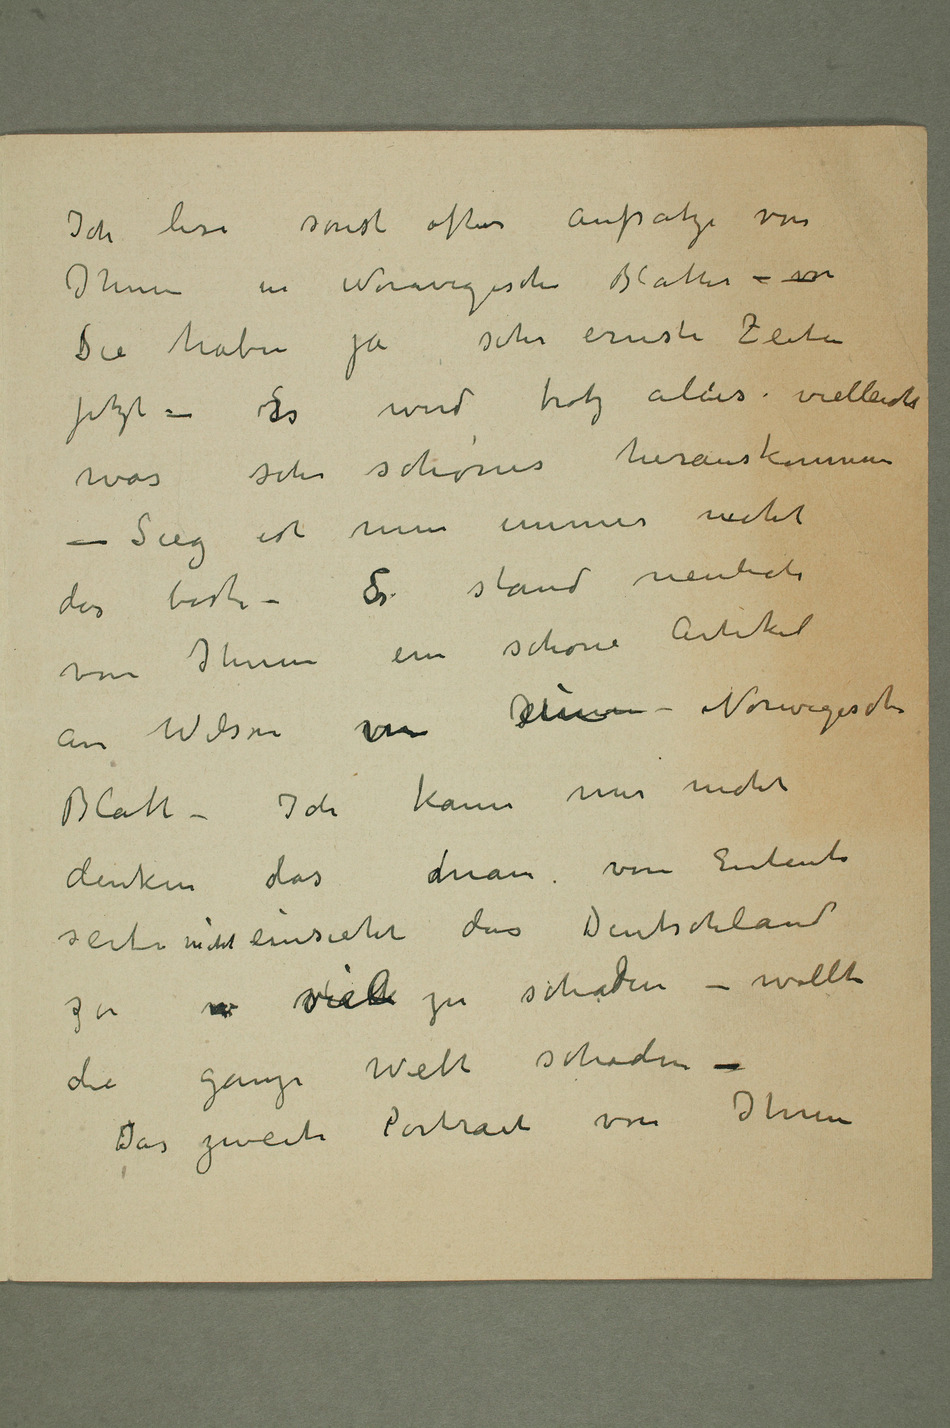 Ich lese sonst ofters aufsatze von
Ihnen in Norwegische Blatter –
Sie haben ja sehr ernste Zeiten
jetzt – Es wird trotz alles vielleicht
was sehr schönes herauskommen
– Sieg ist nun immer nicht
das beste – Es stand neulich
von Ihnen ein schöne Artikel
an Wilson – Norwegische
Blatt – Ich kann mir nicht
denken das man von Entente
seite nicht einsieht das Deutschland
zu viel zu schaden – wollte
die ganze Welt schaden –
Das zweite Portrait von Ihnen